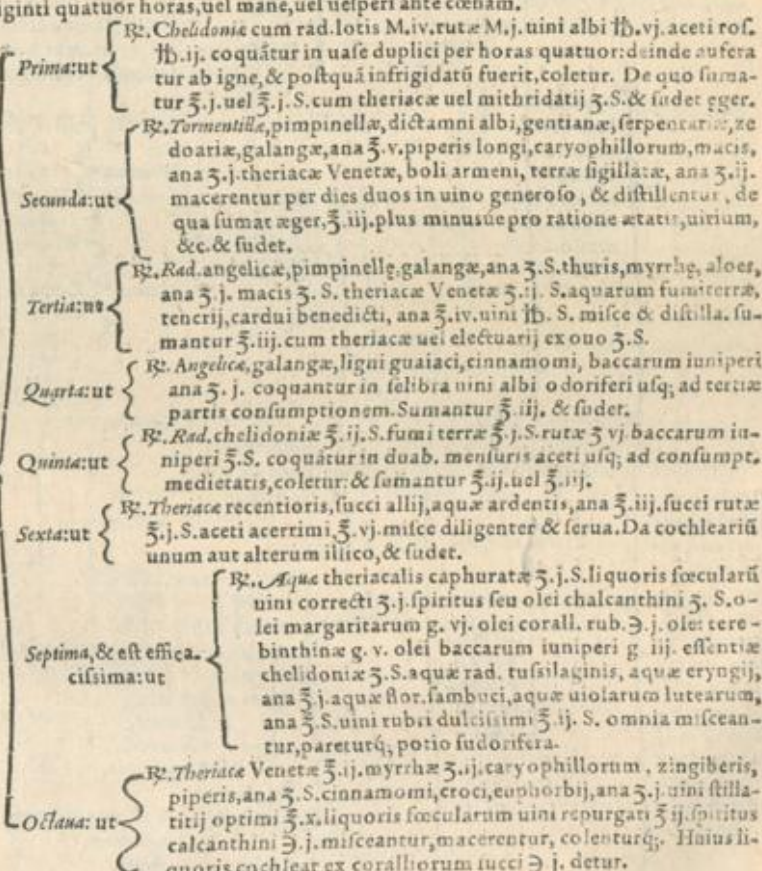 iginti quatuor horas, uel mane, uel uesperi ante cœnam.
Prima: ut
℞. Chelidoniæ cum rad. lotis M.iv. rutæ M.j. uini albi ℔.vj. aceti ros.
℔.ij. coquãtur in uase duplici per horas quatuor: deinde aufera
tur ab igne, & postquã infrigidatũ fuerit, coletur. De quo suma-
tur ℥.j. uel ℥.j.S. cum theriacæ uel mithridatij ʒ.S. & sudet eger.
Secunda: ut
℞. Tormentillæ, pimpinellæ, dictamni albi, gentianæ, serpentariæ, ze
doariæ, galangæ, ana ℥.v. piperis longi, caryophillorum, macis,
ana ʒ.j. theriacæ Venetæ, boli armeni, terræ sigillatæ, ana ʒ.ij.
macerentur per dies duos in uino generoso, & distillentur, de
qua sumat æger, ℥.iij. plus minusúe pro ratione ætatis, uirium,
&c. & sudet.
Tertia: ut
℞. Rad. angelicæ, pimpinellę, galangæ, ana ʒ.S. thuris, myrrhę, aloes,
ana ʒ.j. macis ʒ.S. theriacæ Venetæ ʒ.ij. S. aquarum fumiterræ,
teucrij, cardui benedicti, ana ℥.iv. uini ℔.S. misce & distilla. su-
mantur ℥.iij. cum theriacæ uel electuarij ex ouo ʒ.S.
Quarta: ut
℞. Angelicæ, galangæ, ligni guaiaci, cinnamomi, baccarum iuniperi
ana ʒ.j. coquantur in selibra uini albi odoriferi usq; ad tertiæ
partis consumptionem. Sumantur ℥.iij. & sudet.
Quinta: ut
℞. Rad. chelidoniæ ℥.ij.S. fumi terræ ℥.j.S. rutæ ʒ vj baccarum iu-
niperi ℥.S. coquãtur in duab. mensuris aceti usq; ad consumpt.
medietatis, coletur: & sumantur ℥.ij. uel ℥.iij.
Sexta: ut
℞. Theriacæ recentioris, succi allij, aquæ ardentis, ana ℥.iij. succi rutæ
℥.j.S. aceti acerrimi, ℥.vj. misce diligenter & serua. Da cochleariũ
unum aut alterum illico, & sudet.
Septima, & est effica-
cissima: ut
℞. Aquæ theriacalis caphuratæ ʒ.j.S. liquoris fœcularũ
uini correcti ʒ.j. spiritus seu olei chalcanthini ʒ.S. o-
lei margaritarum g. vj. olei corall. rub. ℈.j. olei tere-
binthinæ g. v. olei baccarum iuniperi g iij. essentiæ
chelidoniæ ʒ.S. aquæ rad. tussilaginis, aquæ eryngij,
ana ℥.j. aquæ flor. sambuci, aquæ uiolarum lutearum,
ana ℥.S. uini rubri dulcissimi ℥.ij. S. omnia miscean-
tur, pareturq́; potio sudorifera.
Octaua: ut
℞. Theriacæ Venetæ ℥.ij. myrrhæ ʒ.ij. caryophillorum, zingiberis,
piperis, ana ʒ.S. cinnamomi, croci, euphorbij, ana ʒ.j. uini stilla-
titij optimi ℥.x. liquoris fœcularum uini repurgati ℥ ij. spiritus
calcanthini ℈.j. misceantur, macerentur, colenturq́;. Huius li-
quoris cochlear ex coralliorum succi ℈ j. detur.